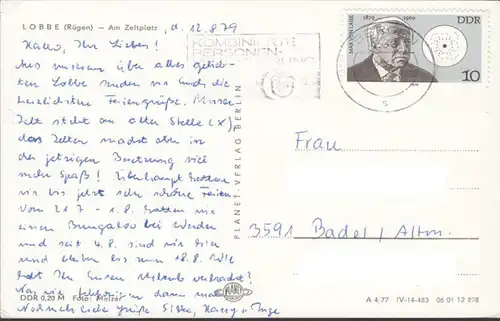 LOBBE (Rügen) — Am Zeltplatz, d. 12.8.79
Hallo, Ihr Lieben!
Aus unserem über alles gelieb-
ten Lobbe senden wir Euch die
herzlichsten Feriengrüße. Unser
Zelt steht an alter Stelle (x),
das Zelten macht aber in
der jetzigen Besetzung viel
mehr Spaß! Überhaupt hatten
wir bis jetzt sehr schöne Ferien
Vom 21.7. - 1.8. hatten wir
einen Bungalow bei Werder
und seit 4.8. sind wir hier
und bleiben bis zum 18.8. Wie
habt Ihr Euren Urlaub verbracht?
DDR 0,20 M Foto: Melzer
Nochmals liebe Grüße
KOMBINIERTE
PERSONEN-
1879 1960
DDR
MAX VON LAUE
10
1979
PLANET-VERLAG BERLIN
PLANET
Frau
3591 Badel / Altm.
A 4/77 IV-14-483 06 01 12 878